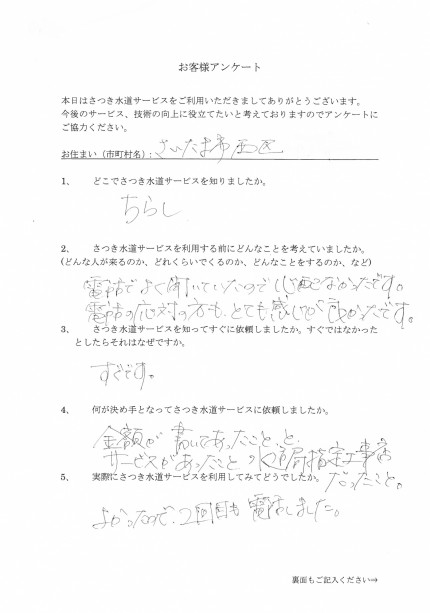 お客様アンケート
本日はさつき水道サービスをご利用いただきましてありがとうございます。
今後のサービス、技術の向上に役立てたいと考えておりますのでアンケートに
ご協力ください。
お住まい（市町村名）: さいたま市西区
1、 どこでさつき水道サービスを知りましたか。
ちらし
2、 さつき水道サービスを利用する前にどんなことを考えていましたか。
(どんな人が来るのか、どれくらいでくるのか、どんなことをするのか、など)
電話でよく聞いていたので心配なかったです。
電話の応対の方も、とても感じが良かったです。
3、 さつき水道サービスを知ってすぐに依頼しましたか。すぐではなかった
としたらそれはなぜですか。
すぐです。
4、 何が決め手となってさつき水道サービスに依頼しましたか。
金額が書いてあったこと、と
サービスがあったこと 水道局指定工事店
だったこと。
5、 実際にさつき水道サービスを利用してみてどうでしたか。
よかったので、2回目も電話しました。
裏面もご記入ください→